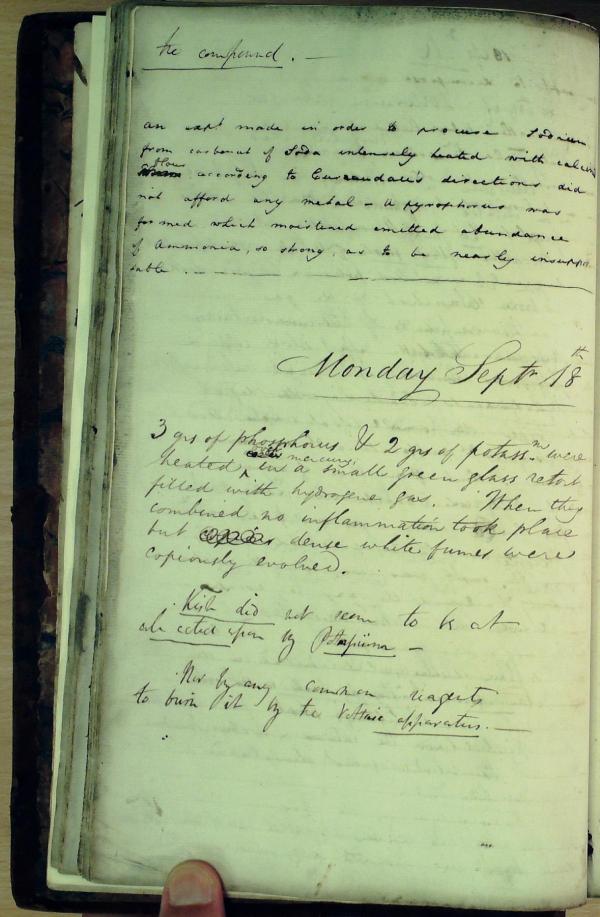 the compound. —
an expt made in order to procure Sodium
from carbonat of Soda intensely heated with calcined
flour according to Curaudau's directions did
not afford any metal – a pyrophorus was
formed which moistened emitted abundance
of Ammonia, so strong, as to be nearly insuppor
table. —
Monday Septr 18th
3 grs of phosphorus & 2 grs of potassm were
heated, in mercury, a small green glass retort
filled with hydrogene gas. When they
combined no inflammation took place
but dense white fumes were
copiously evolved.
Kish did not seem to be at
all acted upon by Potassium –
Nor by any common reagents
to burn it by the Voltaic apparatus. —